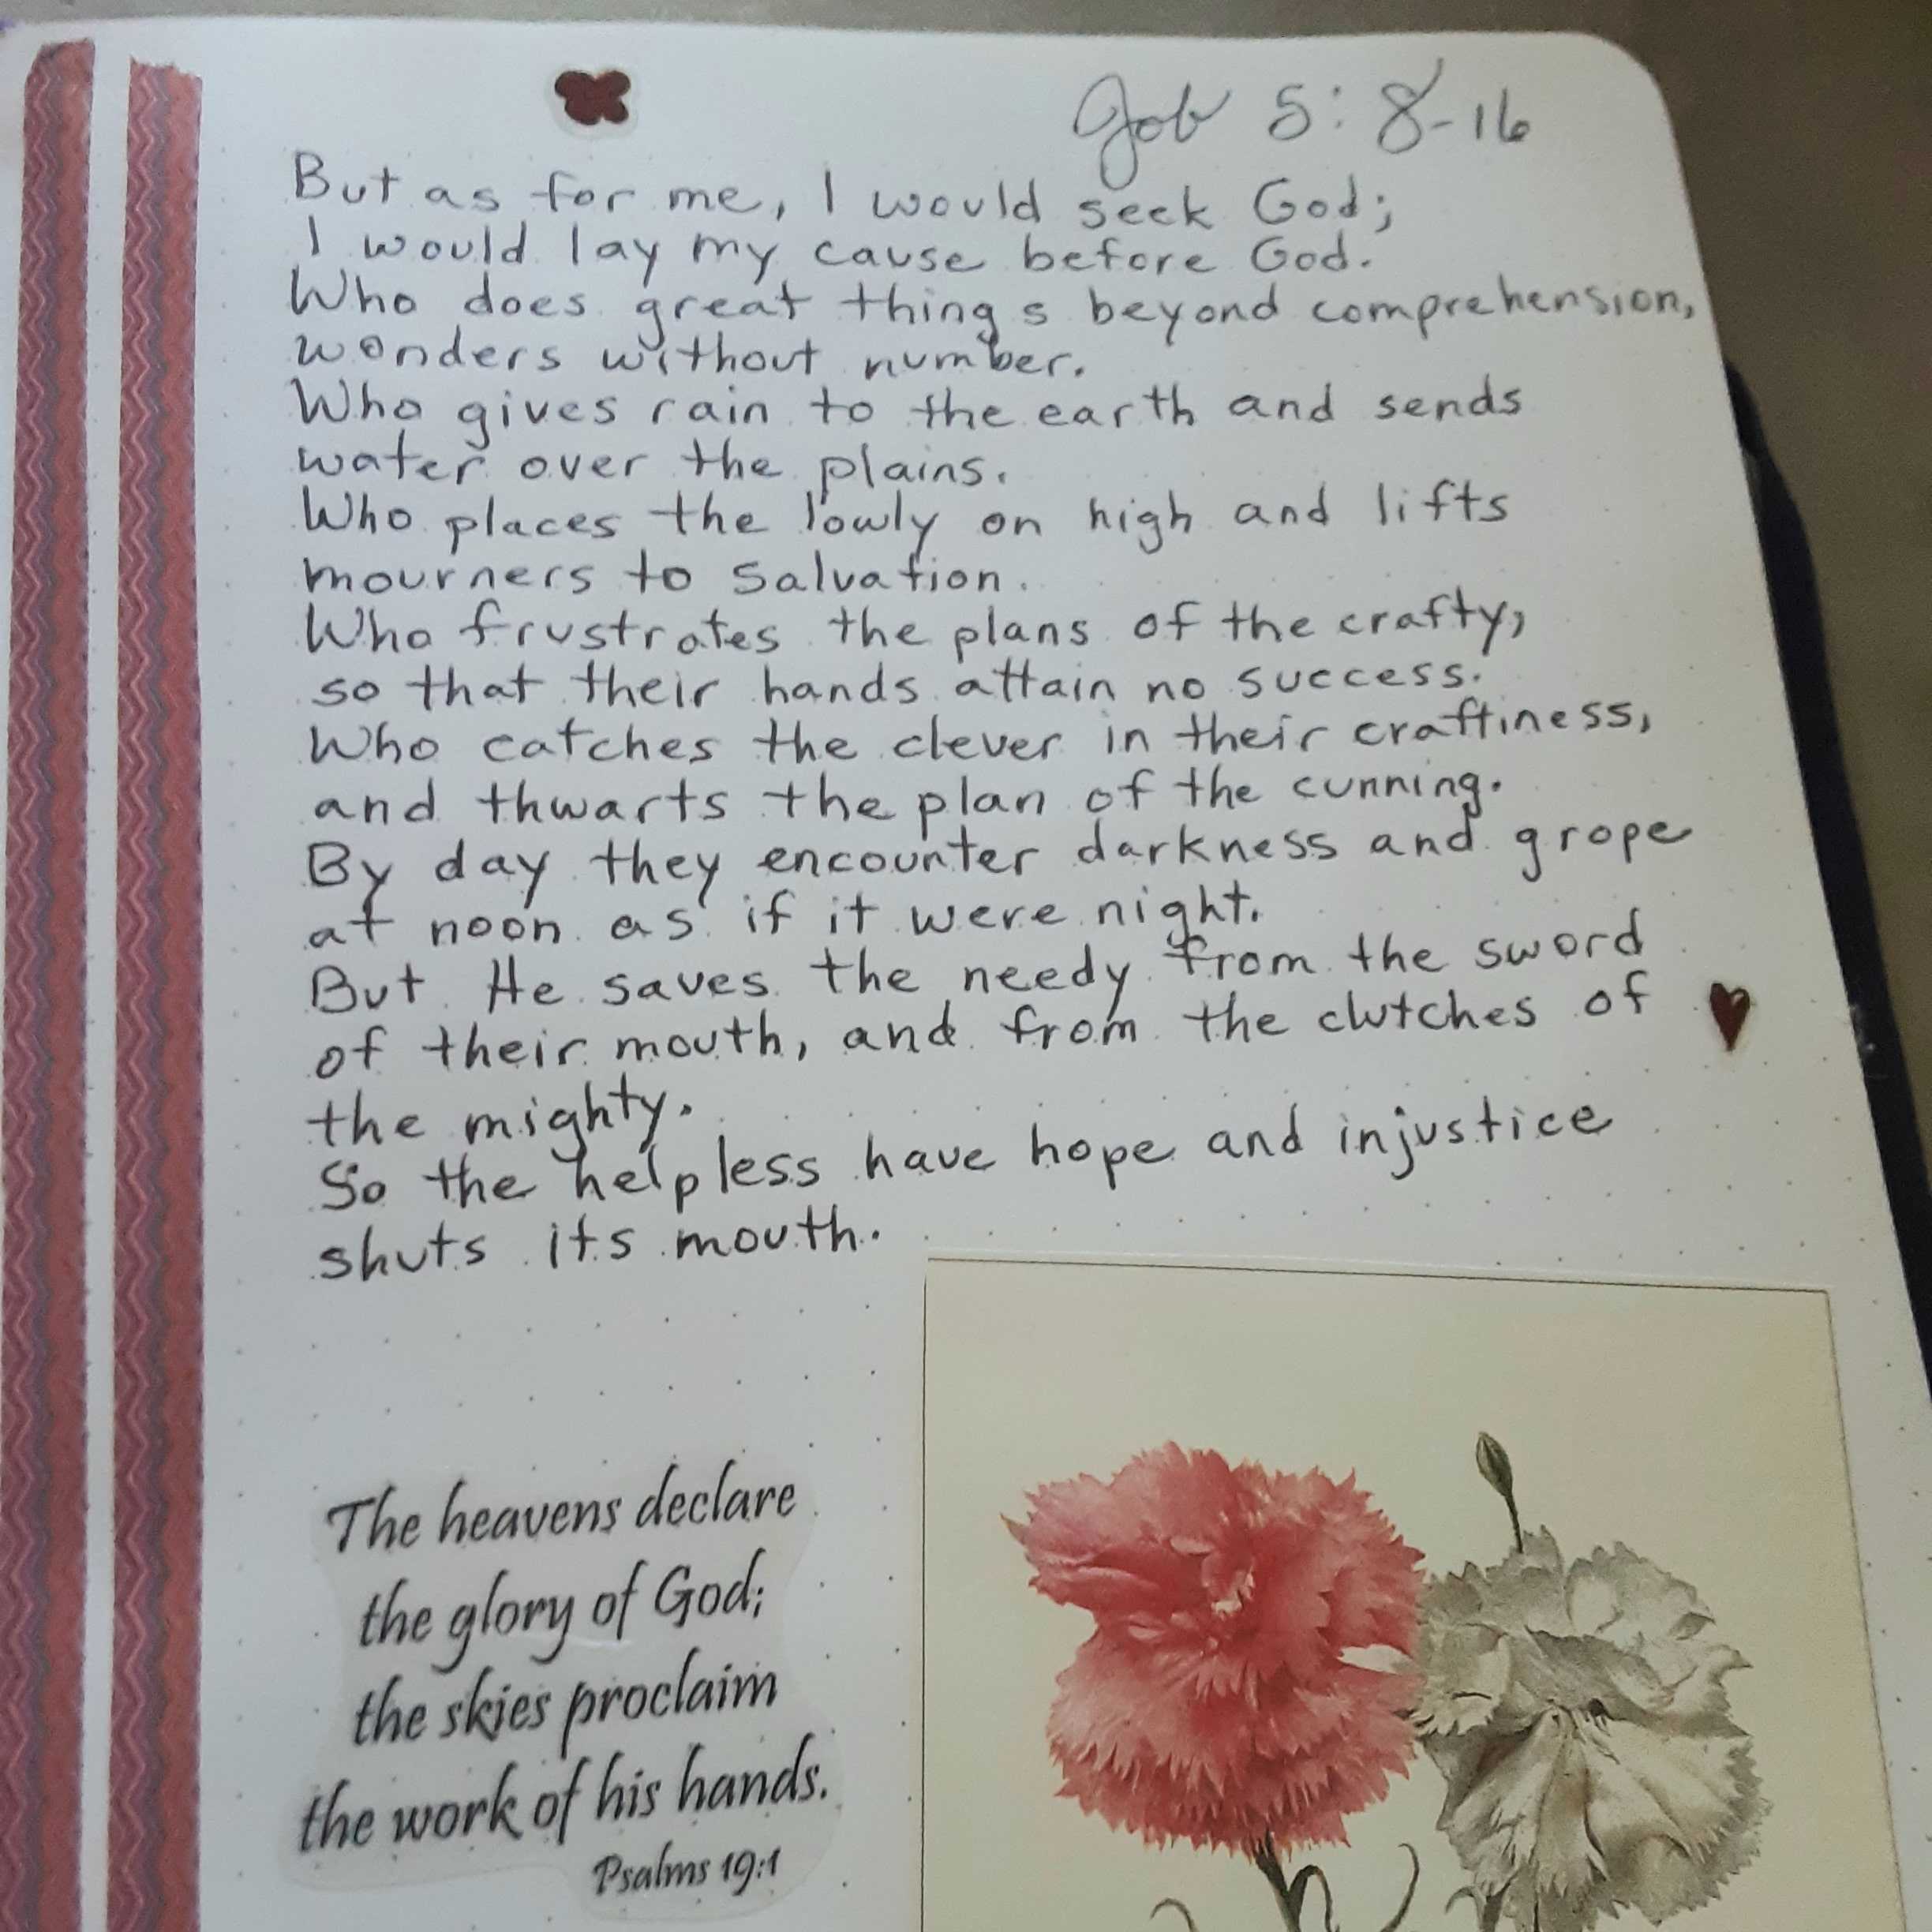 Job 5:8-16
But as for me, I would seek God;
I would lay my cause before God.
Who does great things beyond comprehension,
wonders without number.
Who gives rain to the earth and sends
water over the plains.
Who places the lowly on high and lifts
mourners to salvation.
Who frustrates the plans of the crafty,
so that their hands attain no success.
Who catches the clever in their craftiness,
and thwarts the plan of the cunning.
By day they encounter darkness and grope
at noon as if it were night.
But He saves the needy from the sword
of their mouth, and from the clutches of
the mighty.
So the helpless have hope and injustice
shuts its mouth.
The heavens declare
the glory of God;
the skies proclaim
the work of his hands.
Psalms 19:1